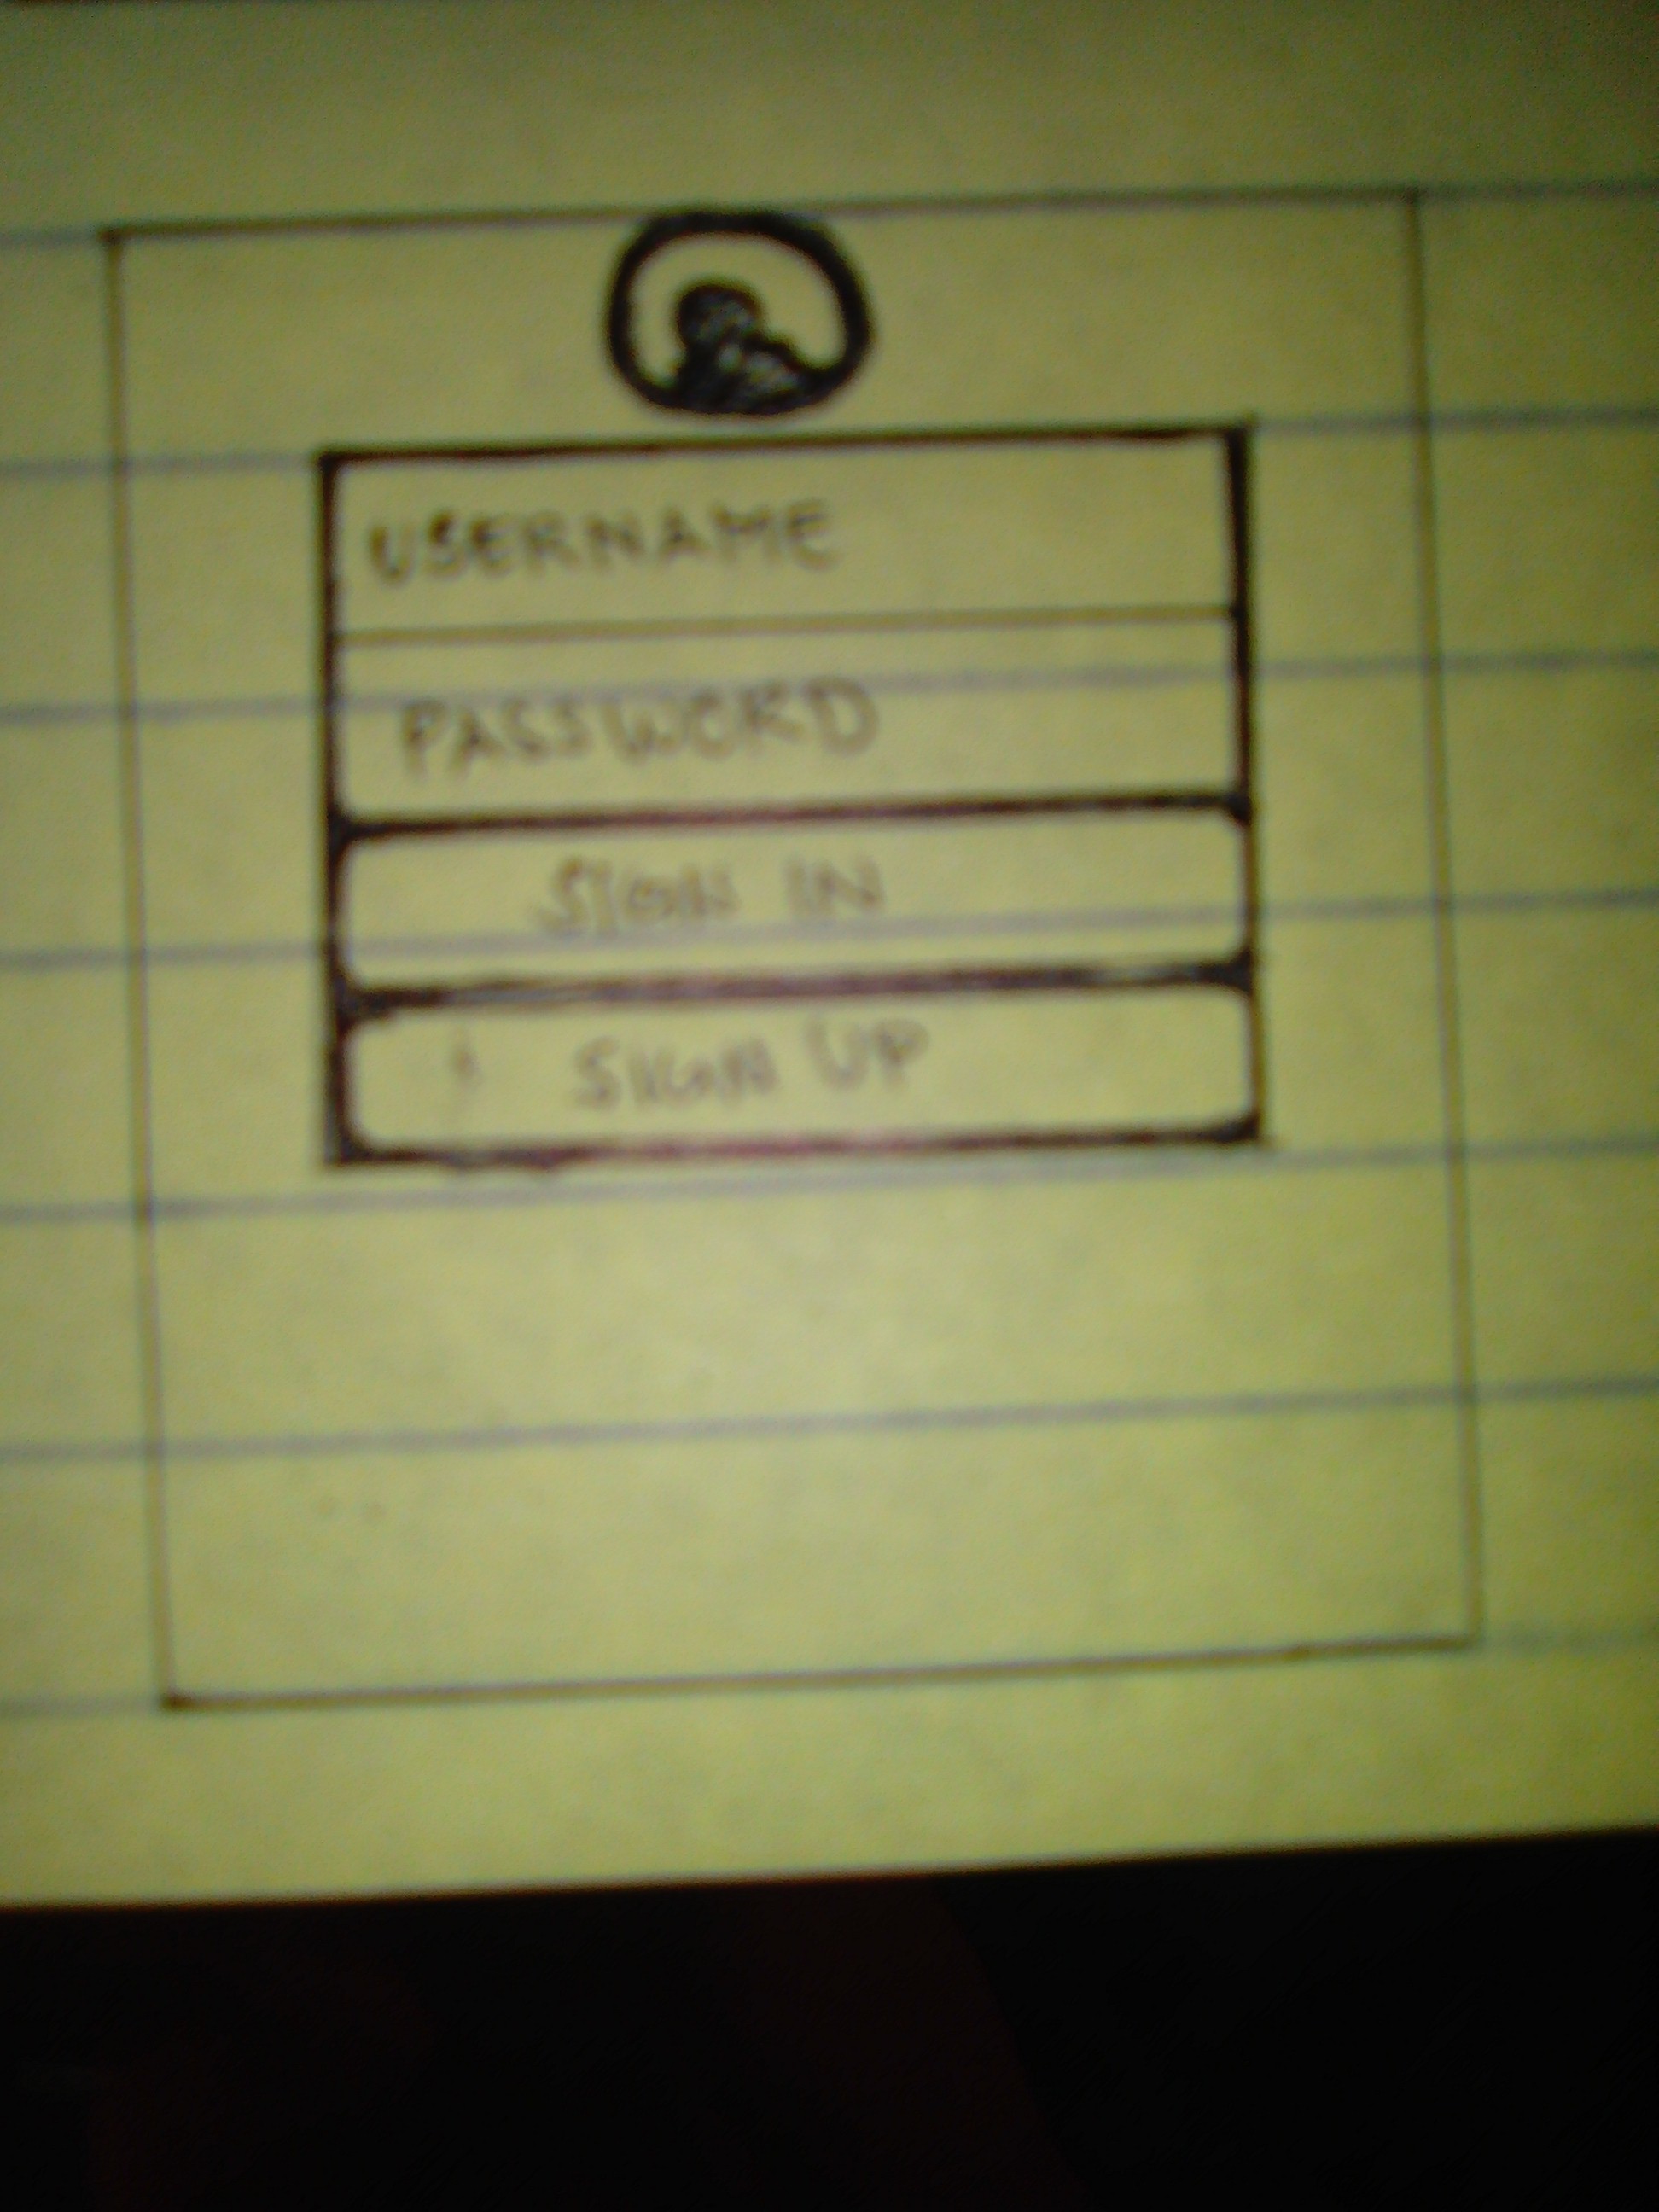 USERNAME
PASSWORD
SIGN IN
SIGN UP